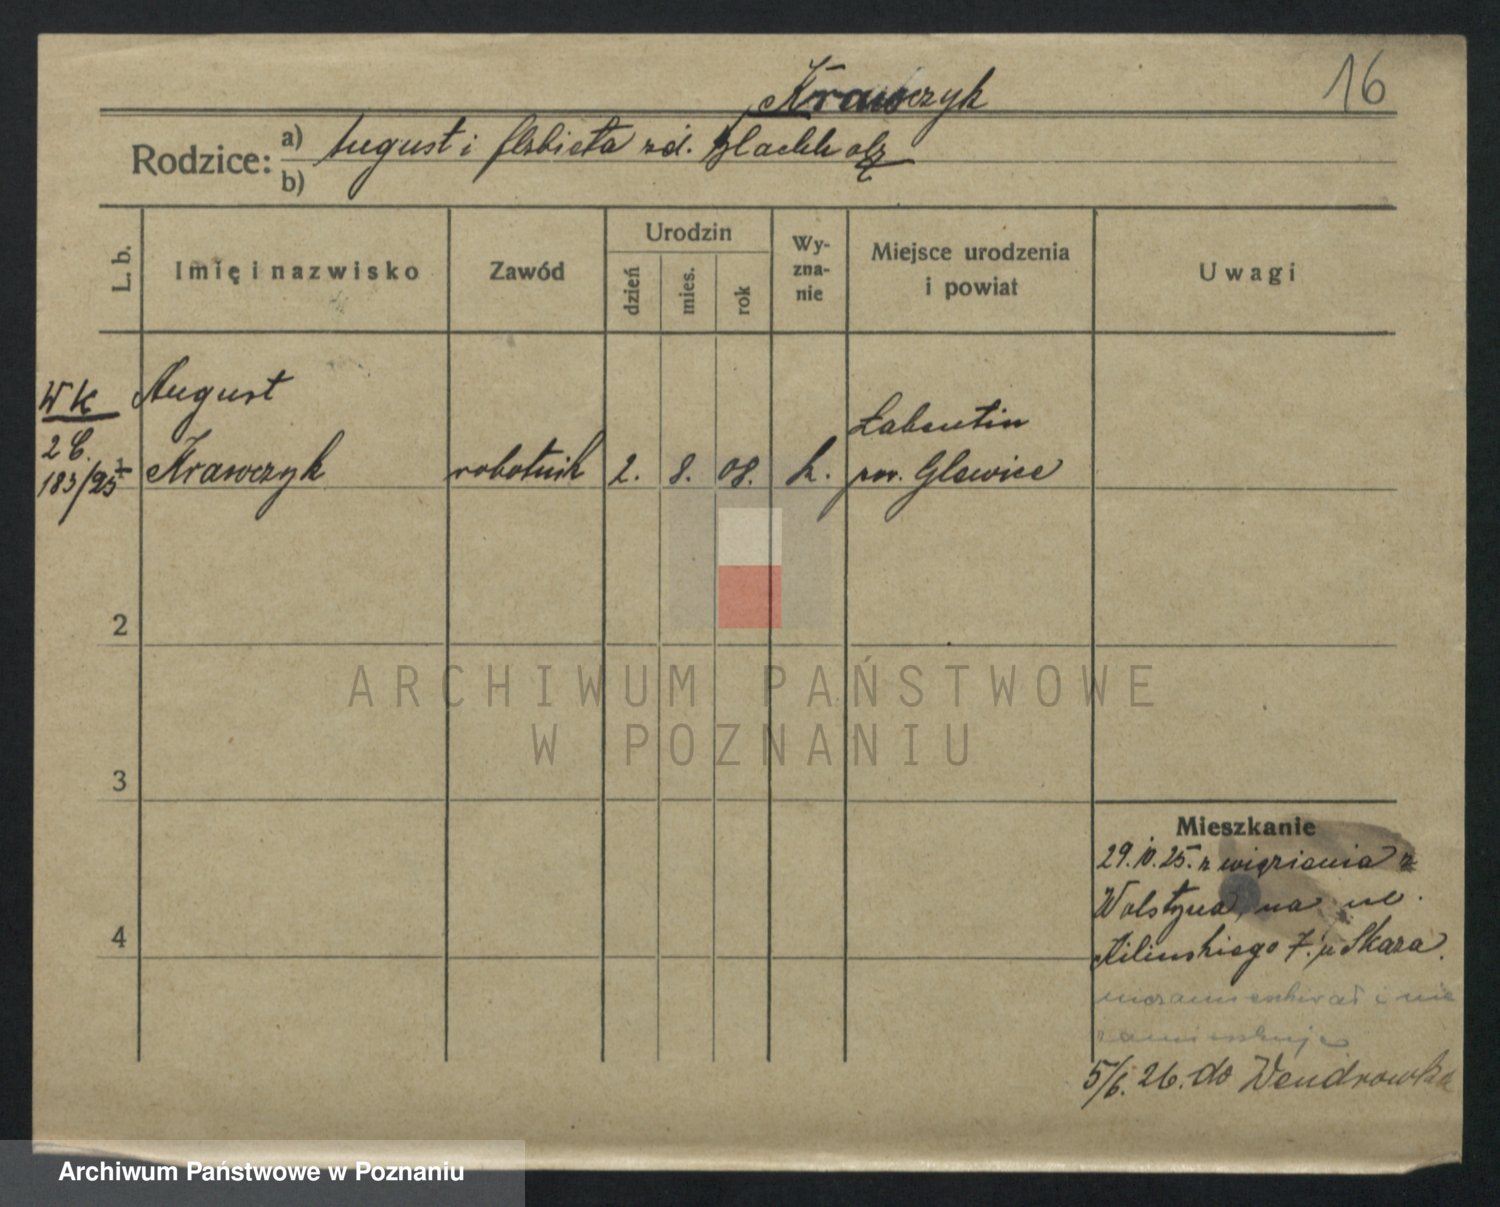 16
Krawczyk
Rodzice: a) August i Elżbieta zd. Blachholz
b)
L. b. Imię i nazwisko Zawód Urodzin dzień mies. rok Wyznanie Miejsce urodzenia i powiat Uwagi
W K August Łabentin
2 C.
183/25 1 Krawczyk robotnik 2. 8. 08. k. pow. Glewice
2
ARCHIWUM PAŃSTWOWE
W POZNANIU
3
Mieszkanie
29.10.25. z więzienia z
Wolstyna, na ul.
4
Kilinskiego 7. u Skaza.
niezamieszkiwał i nie
zamieszkuje
5/6. 26. do Wendrowka
Archiwum Państwowe w Poznaniu